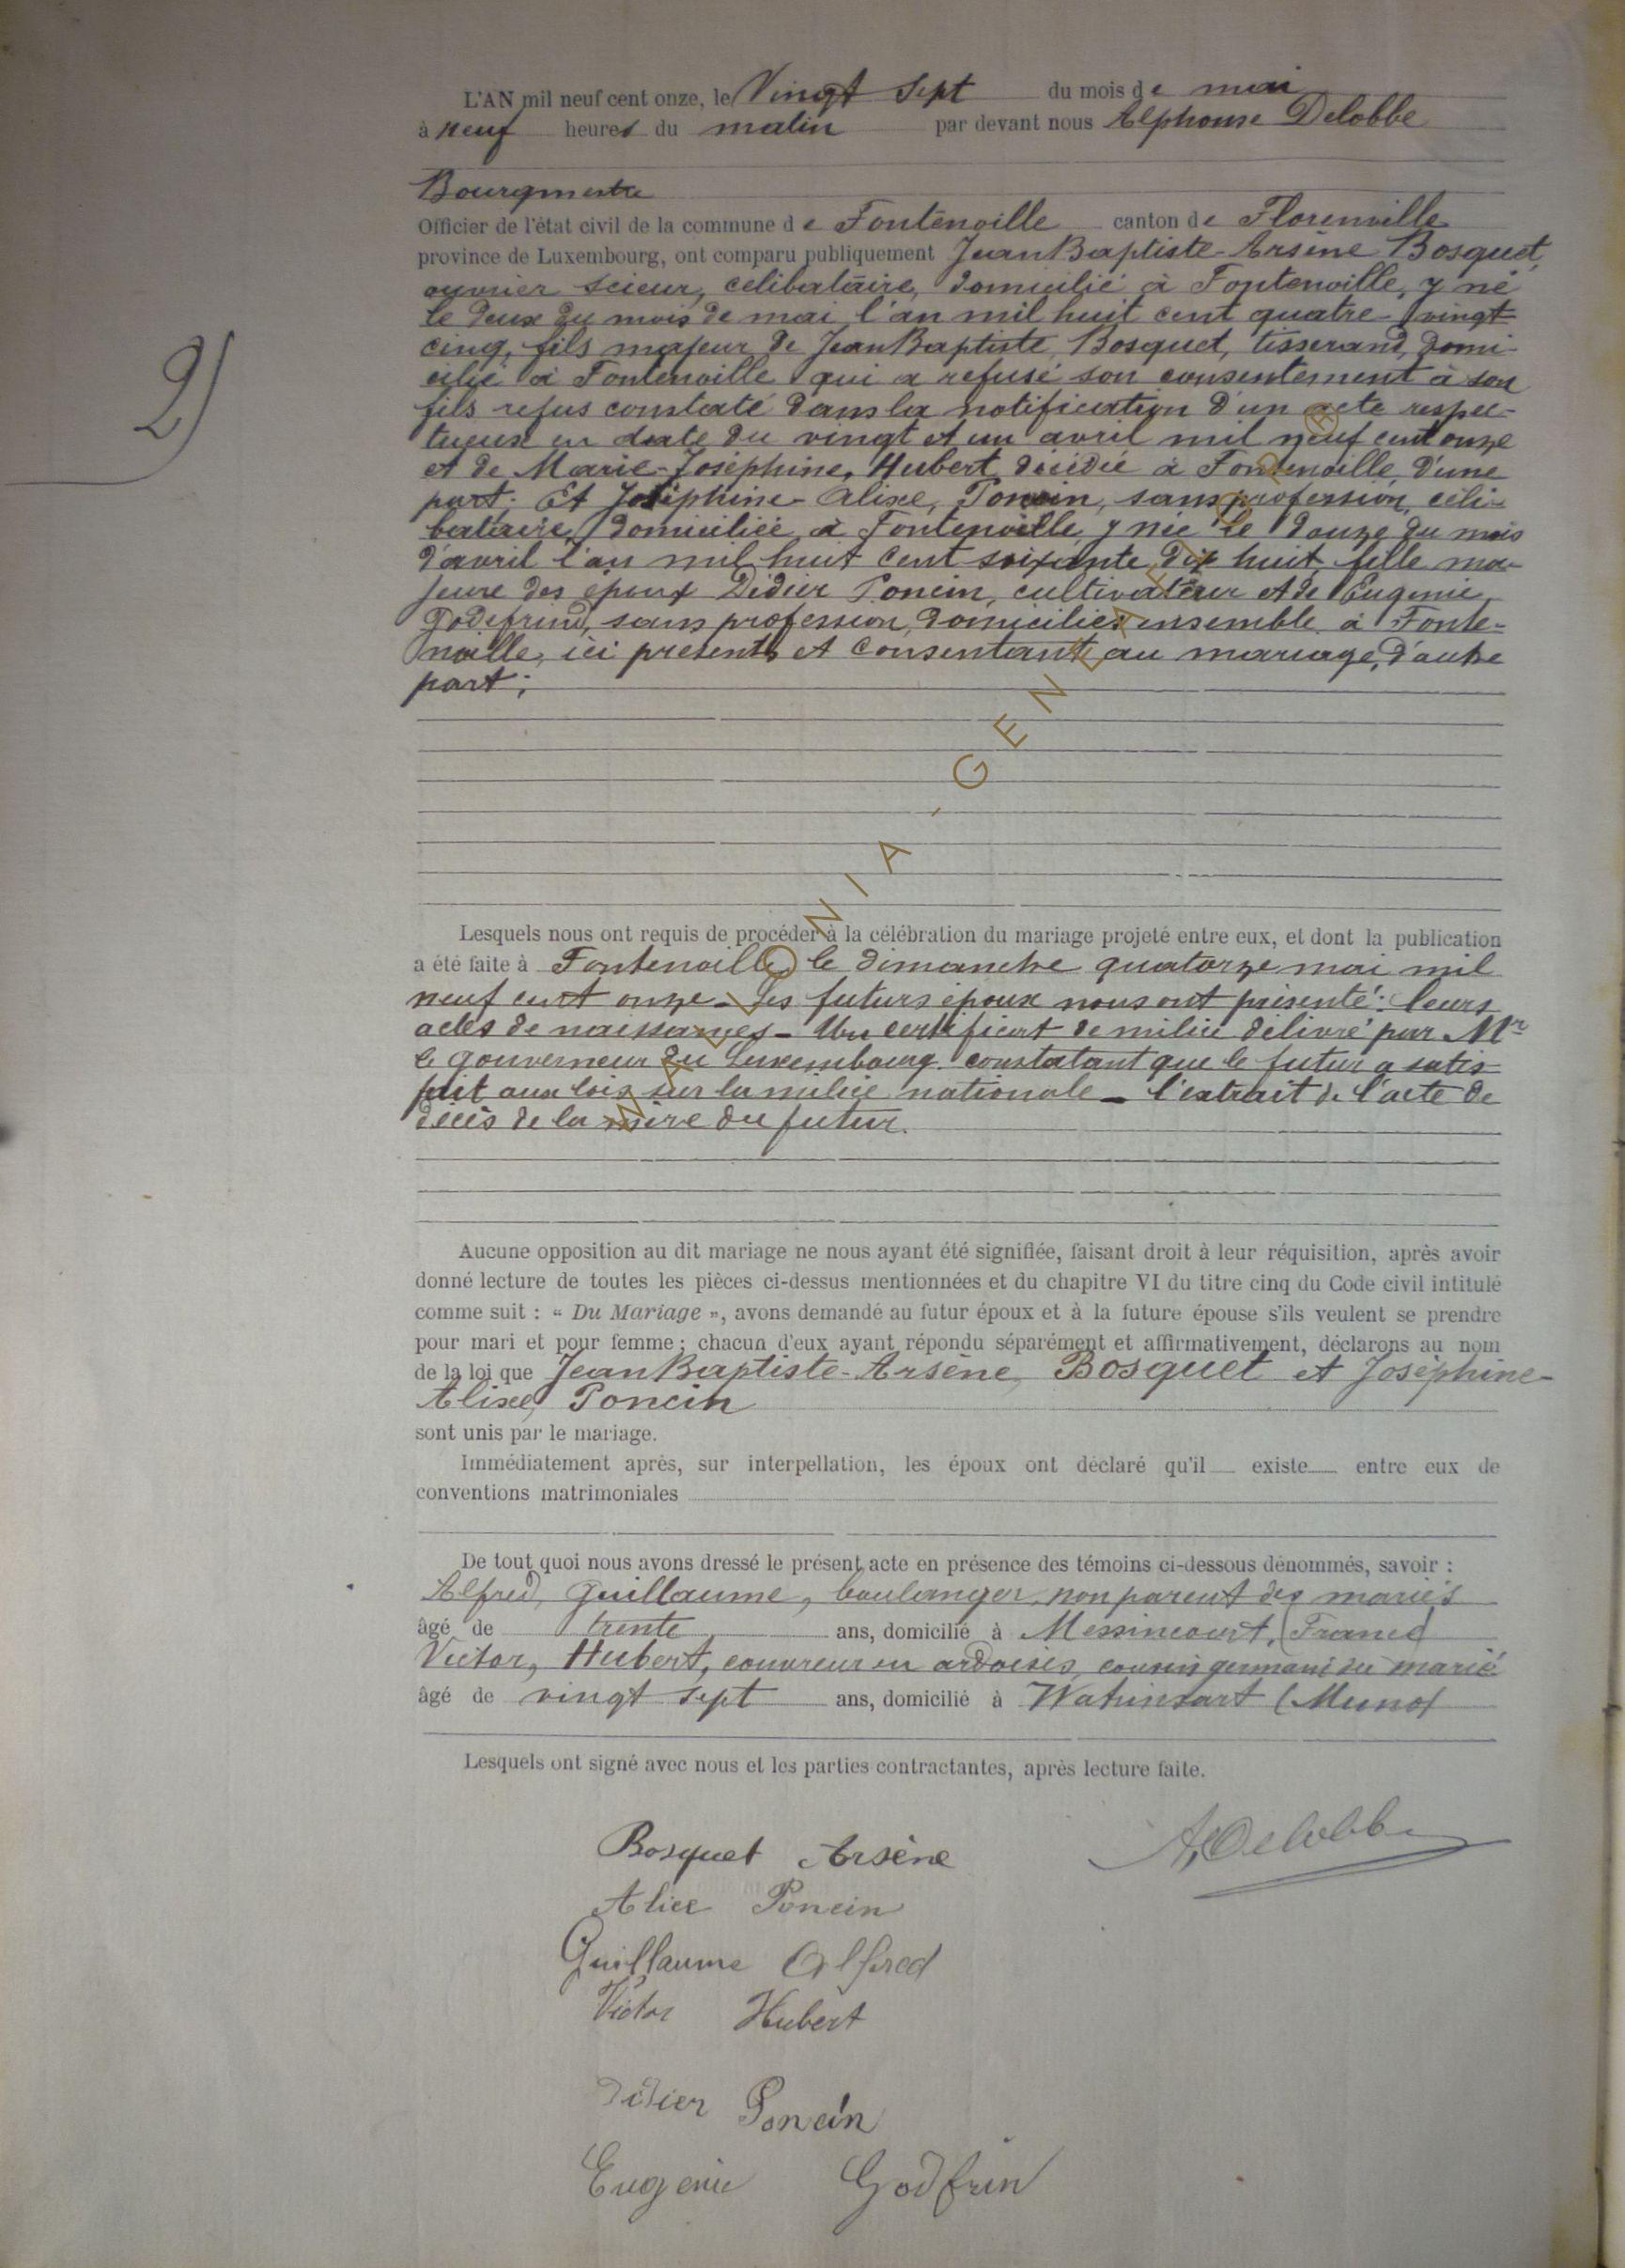 L'AN mil neuf cent onze, le Vingt Sept du mois de mai
à neuf heures du matin par devant nous Alphonse Delobbe
Bourgmestre
Officier de l'état civil de la commune de Fontenoille canton de Florenville
province de Luxembourg, ont comparu publiquement Jean Baptiste-Arsène Bosquet,
ouvrier scieur, célibataire, domicilié à Fontenoille, y né
le deux du mois de mai l'an mil huit cent quatre-vingt
cinq, fils majeur de Jean Baptiste Bosquet, tisserand, domi-
cilié à Fontenoille qui a refusé son consentement à son
fils refus constaté dans la notification d'un acte respec-
tueux en date du vingt et un avril mil neuf cent onze
et de Marie-Joséphine, Hubert, décédée à Fontenoille, d'une
part. Et Joséphine-Alixe, Poncin, sans profession, céli-
bataire, domiciliée à Fontenoille y née le douze du mois
d'avril l'an mil huit cent soixante dix huit, fille ma-
jeure des époux Didier Poncin, cultivateur et de Eugenie
Godefrind, sans profession, domiciliés ensemble à Fonte-
noille, ici présents et consentant au mariage, d'autre
part;
Lesquels nous ont requis de procéder à la célébration du mariage projeté entre eux, et dont la publication
a été faite à Fontenoille le dimanche quatorze mai mil
neuf cent onze - Les futurs époux nous ont présenté: leurs
actes de naissances - Un certificat de milice délivré par Mr
le gouverneur du Luxembourg constatant que le futur a satis-
fait aux lois sur la milice nationale - l'extrait de l'acte de
décès de la mère du futur.
Aucune opposition au dit mariage ne nous ayant été signifiée, faisant droit à leur réquisition, après avoir
donné lecture de toutes les pièces ci-dessus mentionnées et du chapitre VI du titre cinq du Code civil intitulé
comme suit : « Du Mariage », avons demandé au futur époux et à la future épouse s'ils veulent se prendre
pour mari et pour femme ; chacun d'eux ayant répondu séparément et affirmativement, déclarons au nom
de la loi que Jean Baptiste-Arsène, Bosquet et Joséphine-
Alixe, Poncin
sont unis par le mariage.
Immédiatement après, sur interpellation, les époux ont déclaré qu'il existe entre eux de
conventions matrimoniales
De tout quoi nous avons dressé le présent acte en présence des témoins ci-dessous dénommés, savoir :
Alfred, Guillaume, boulanger, non parent des mariés
âgé de trente ans, domicilié à Messincourt, (France)
Victor, Hubert, couvreur en ardoises, cousin germain du marié
âgé de vingt sept ans, domicilié à Watrinsart (Muno)
Lesquels ont signé avec nous et les parties contractantes, après lecture faite.
Bosquet Arsène
A, Delobbe
Alice Poncin
Guillaume Alfred
Victor Hubert
Didier Poncin
Eugenie Godfrin
2)
WALLONIA-GENEALOGI®